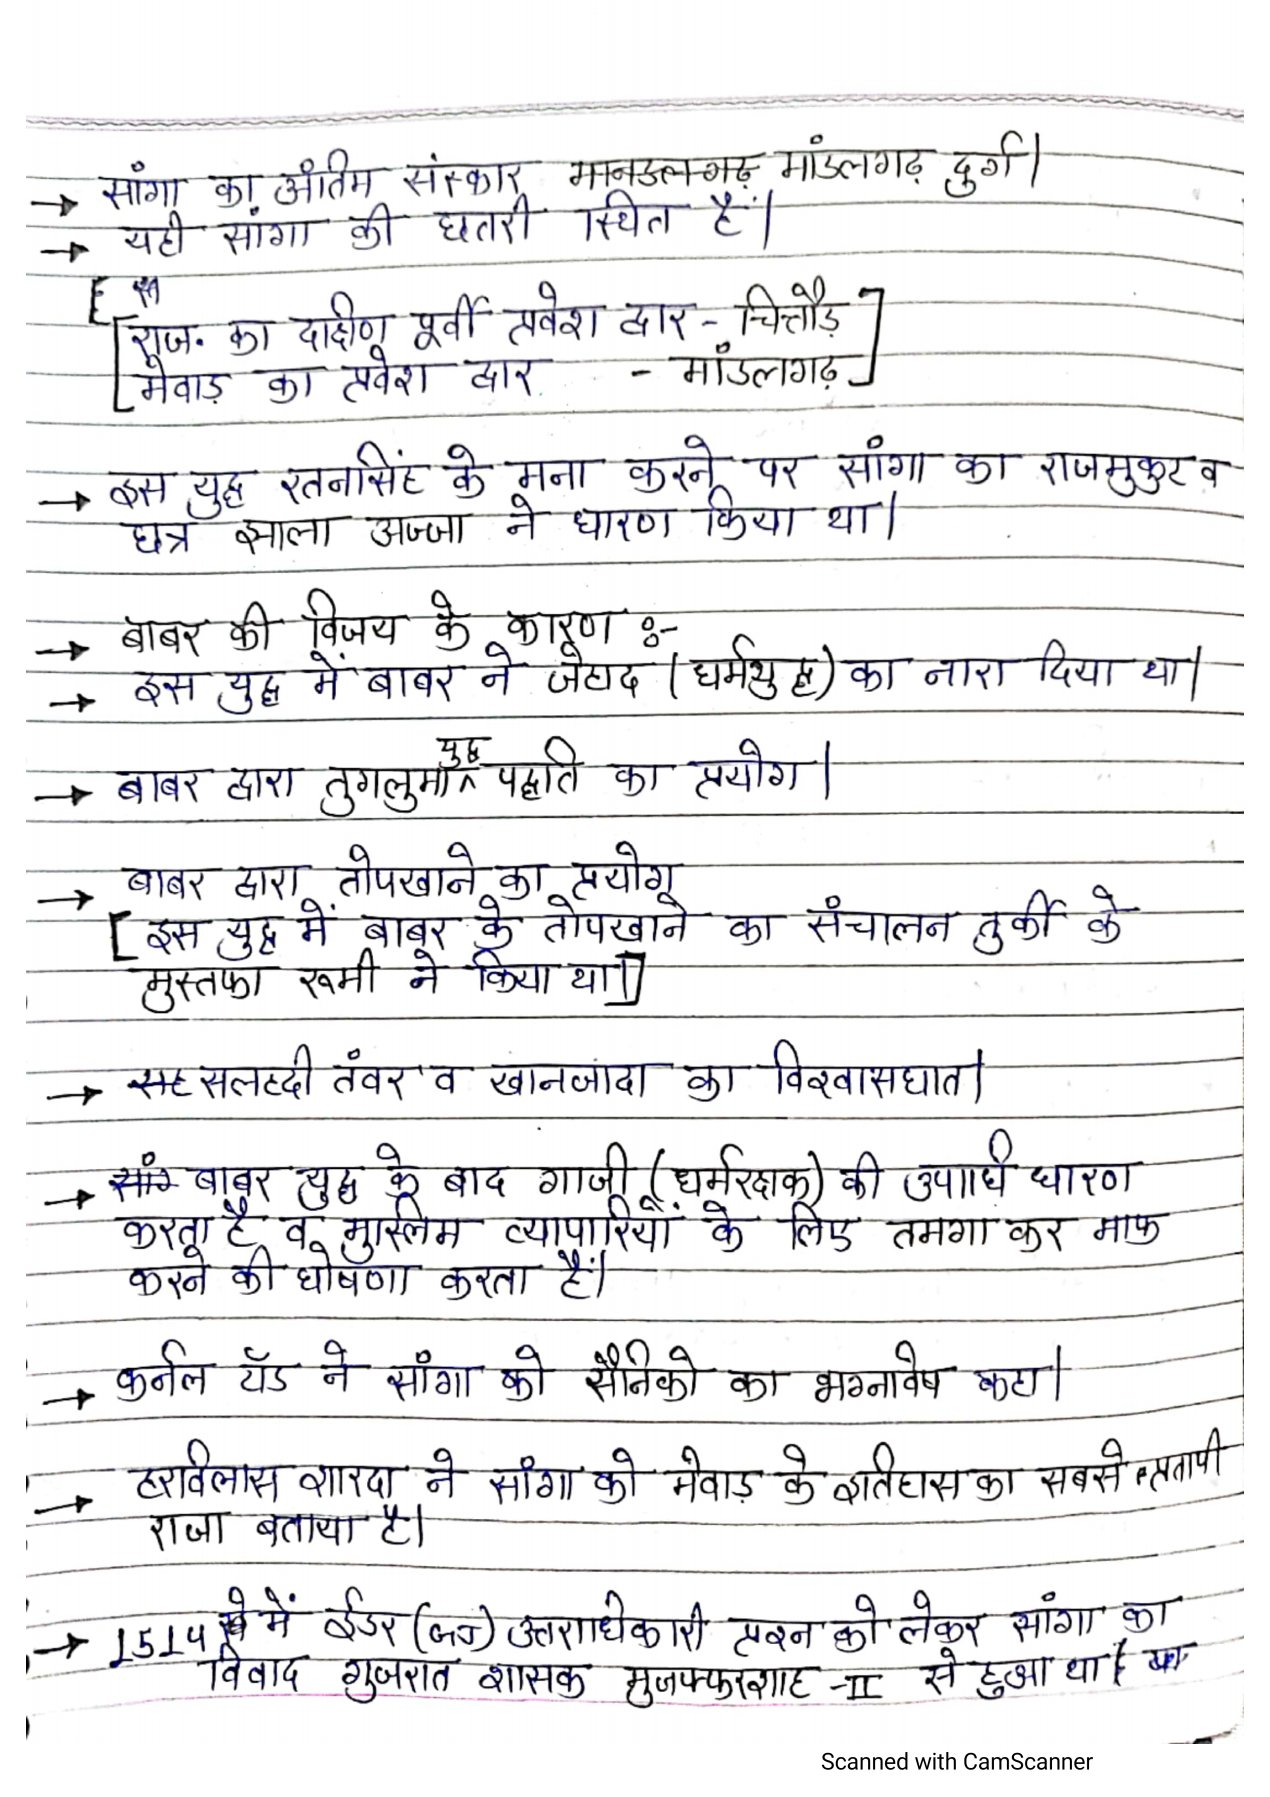 → सांगा का अंतिम संस्कार मानडलगढ़ मांडलगढ़ दुर्ग।
→ यही सांगा की छतरी स्थित है।
[राज. का दाक्षीण पूर्वी प्रवेश द्वार - चित्तौड़]
[मेवाड़ का प्रवेश द्वार - मांडलगढ़]
→ इस युद्ध रतनसिंह के मना करने पर सांगा का राजमुकुट व
छत्र झाला अज्जा ने धारण किया था।
→ बाबर की विजय के कारण :-
→ इस युद्ध में बाबर ने जेहाद (धर्मयुद्ध) का नारा दिया था।
→ बाबर द्वारा तुगलुमा युद्ध पद्धति का प्रयोग।
→ बाबर द्वारा तोपखाने का प्रयोग
[इस युद्ध में बाबर के तोपखाने का संचालन तुर्की के
मुस्तफा रूमी ने किया था।]
→ सह सलहदी तंवर व खानजादा का विश्वासघात।
→ सांग बाबर युद्ध के बाद गाजी (धर्मरक्षक) की उपाधि धारण
करता है व मुस्लिम व्यापारियों के लिए तमगा कर माफ
करने की घोषणा करता है।
→ कर्नल टॉड ने सांगा को सैनिको का भग्नावेष कहा।
→ हरविलास शारदा ने सांगा को मेवाड़ के इतिहास का सबसे प्रतापी
राजा बताया है।
→ 1514 में ईडर उत्तराधिकारी प्रश्न को लेकर सांगा का
विवाद गुजरात शासक मुजफ्फरशाह -II से हुआ था।
Scanned with CamScanner